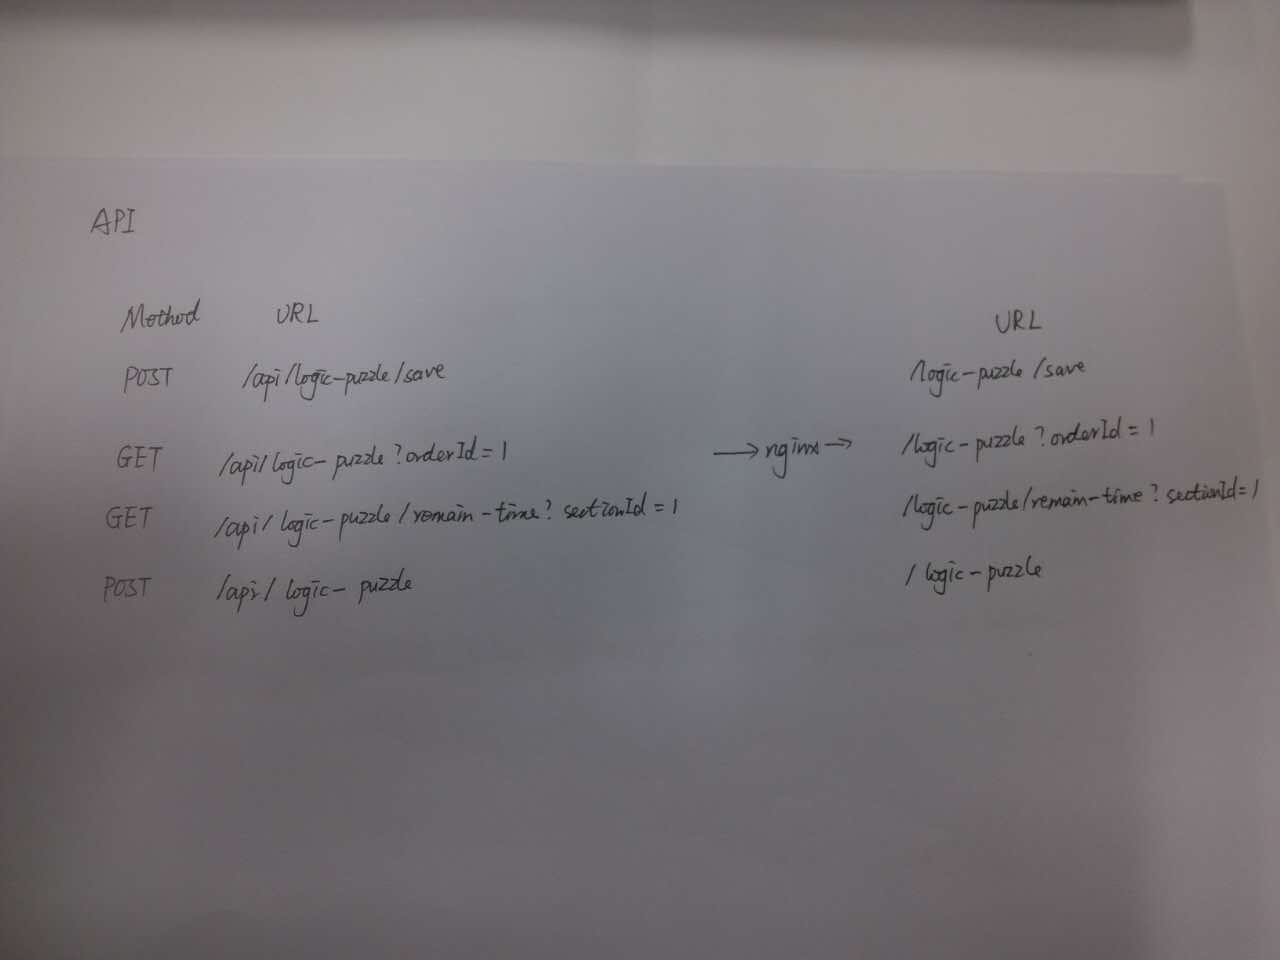 API
Method URL URL
POST /api/logic-puzzle/save /logic-puzzle/save
GET /api/logic-puzzle?orderId=1 → nginx → /logic-puzzle?orderId=1
GET /api/logic-puzzle/remain-time?sectionId=1 /logic-puzzle/remain-time?sectionId=1
POST /api/logic-puzzle /logic-puzzle